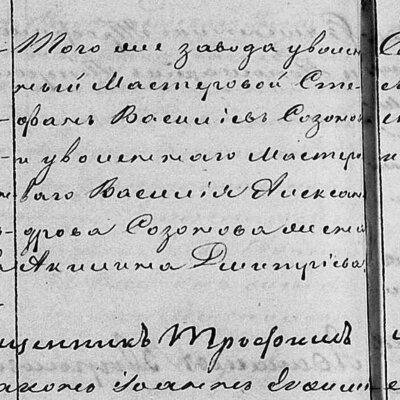 Того же завода уволен
ный Мастеровой Сте
фанъ Василіевъ Созонов
и уволеннаго Мастеро
ваго Василія Алексан
дрова Созонова жена
Акилина Дмитріева
щенникъ Трофимъ
Іоаннъ